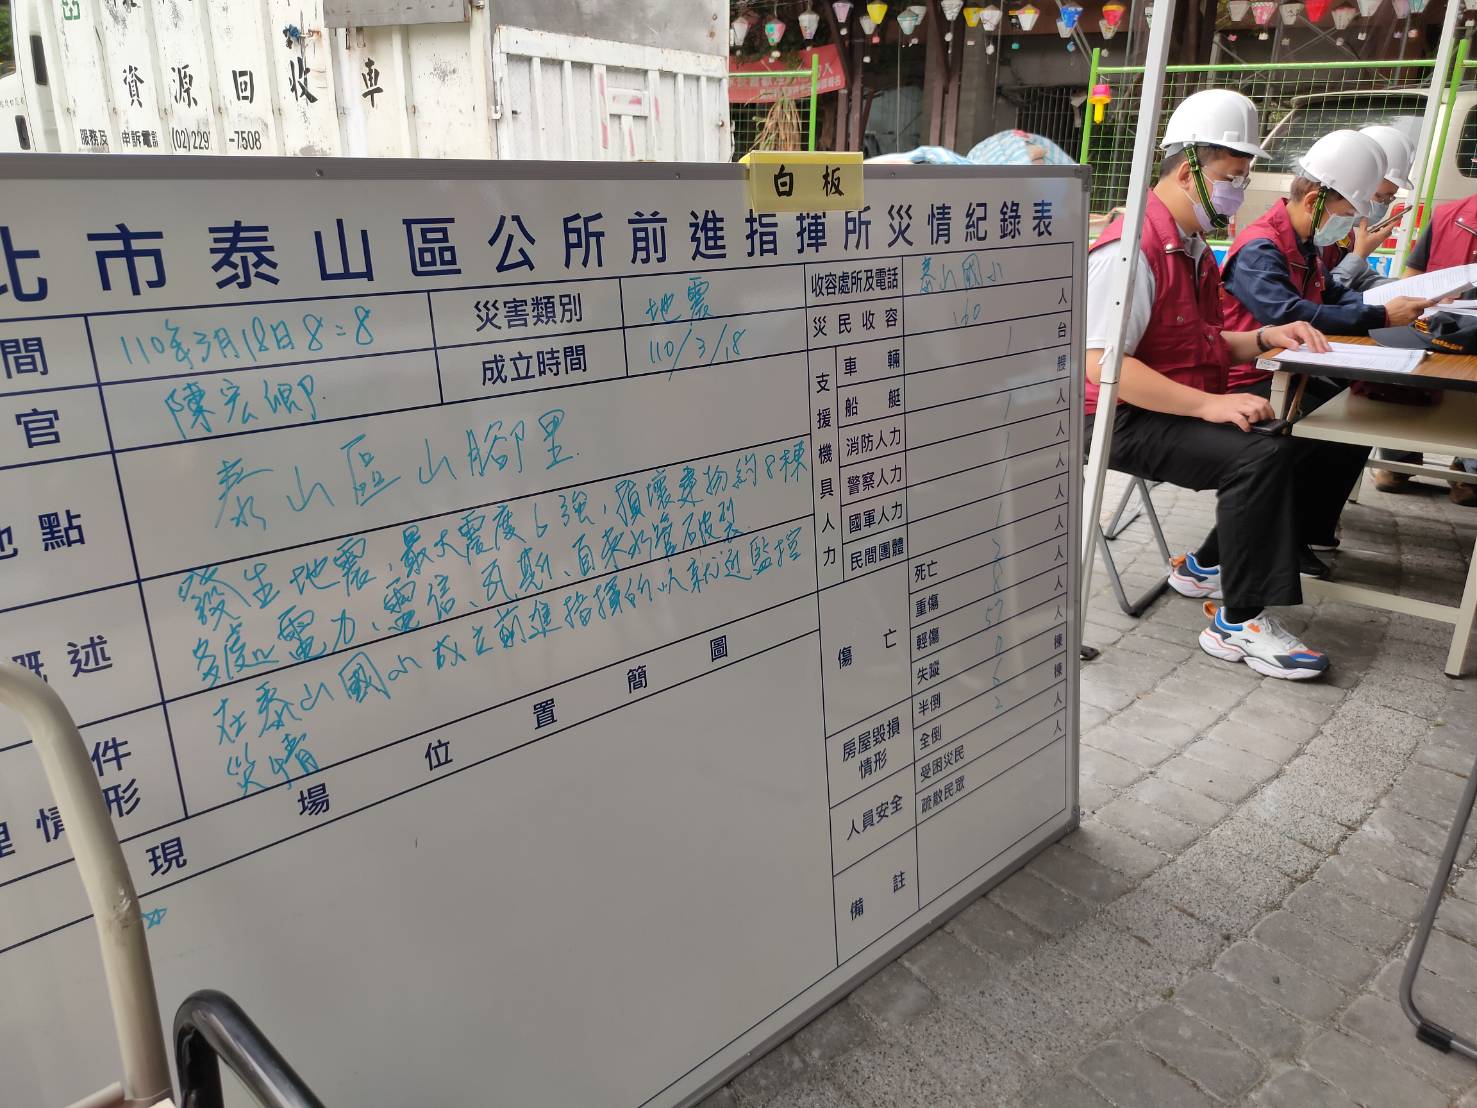 資源回收車
服務及 申訴電話 (02)229 -7508
白板
北市泰山區公所前進指揮所災情紀錄表
間 110年3月18日8:8 災害類別 地震 收容處所及電話 泰山國小
官 陳宏卿 成立時間 110/3/18 災民收容 160 人
地點 泰山區山腳里
概述 發生地震,最大震度6強,損壞建物約8棟
多處電力、電信、瓦斯、自來水管破裂
件 在泰山國小成立前進指揮所以就近監控
理情形 災情
支援機具人力
車輛 1 台
船艇 艘
消防人力 1 人
警察人力 1 人
國軍人力 1 人
民間團體 1 人
傷亡
死亡 人
重傷 人
輕傷 57 人
失蹤 0 人
房屋毀損情形
半倒 6 棟
全倒 2 棟
人員安全
受困災民 人
疏散民眾 人
備註
現場位置簡圖